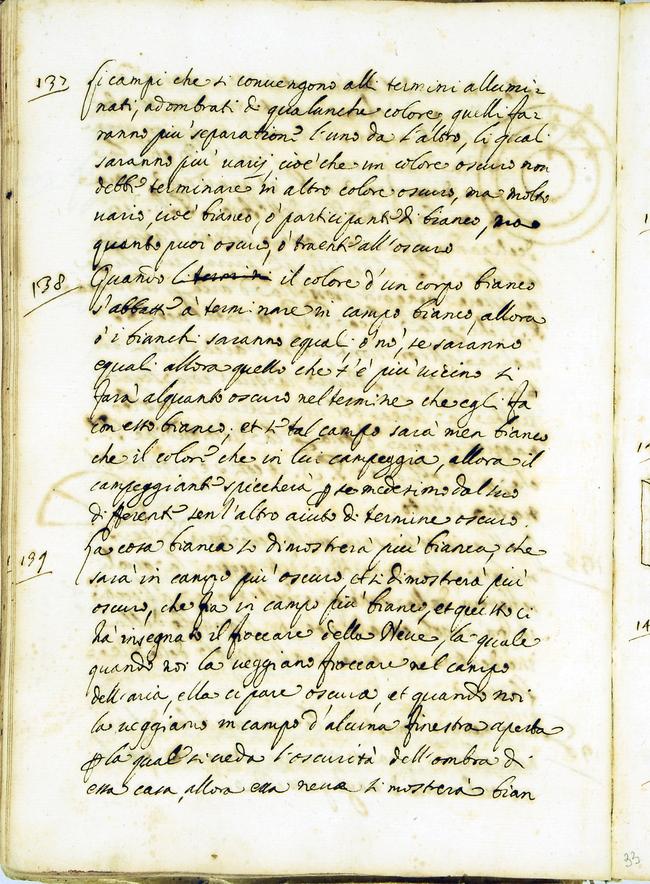 137 Li campi che si convengono alli termini allumi-
nati, adombrati di qualunche colore, quelli fa-
ranno più separatione l'uno da l'altro, li quali
saranno più varij, cioè che un colore oscuro non
debbe terminare in altro colore oscuro, ma molto
vario, cioè bianco, ò participante di bianco, ma
quanto puoi oscuro, ò traente all'oscuro
138 Quando li termini il colore d'un corpo bianco
s'abbatte à terminare in campo bianco, allora
ò i bianchi saranno equali, ò nò, se saranno
equali allora quello che t'è più vicino si
farà alquanto oscuro nel termine che egli fà
con esso bianco; et se tal campo sarà men bianco
che il colore che in lui campeggia, allora il
campeggiante spiccherà per se medesimo dal suo
differente sen l'altro aiuto di termine oscuro.
139 La cosa bianca si dimostrerà più bianca, che
sarà in campo più oscuro, et si dimostrerà più
oscuro, che fia in campo più bianco, et questo ci
hà insegnato il fioccare della Neve, la quale
quando noi la veggiano fioccare nel campo
dell'aria, ella ci pare oscura, et quando noi
la veggiano in campo d'alcuna finestra aperta
per la qual si veda l'oscurità dell'ombra di
essa casa, allora essa neve si mosterà bian
33